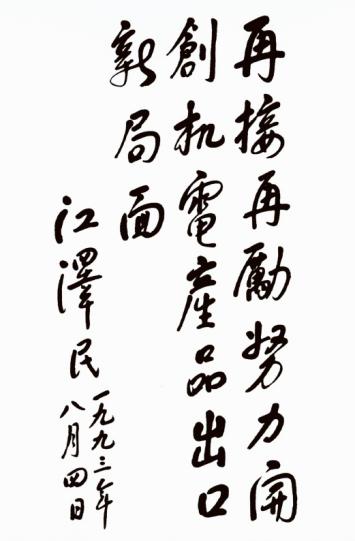 再接再励努力开
創机電産品出口
新局面
江澤民
一九九三年
八月四日